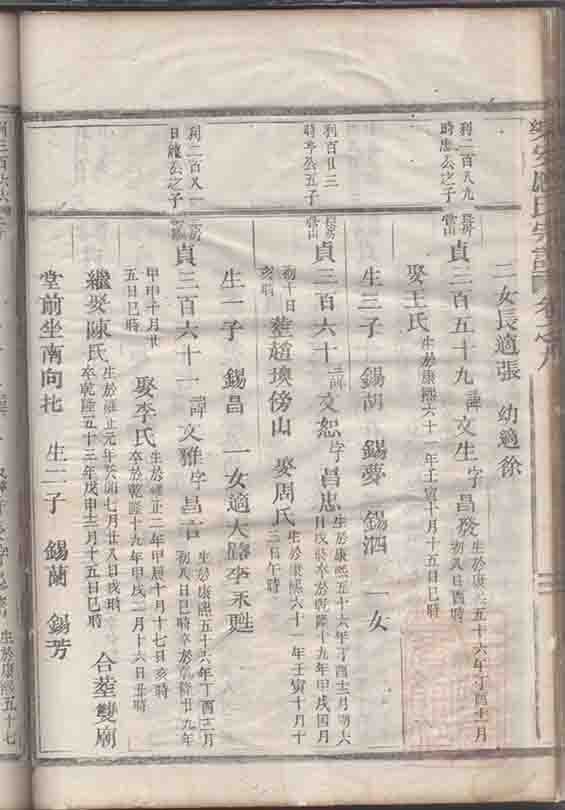 二女長適張　幼適徐
利二百八九
時忠公之子
貞三百五十九　諱文生字昌發
生於康熙五十六年丁酉十月
初八日酉時
娶王氏
生於康熙六十一年壬寅十月十五日巳時
生三子　錫胡　錫夢　錫泗　一女
利百廿三
時亭公五子
貞三百六十　諱文恕字昌忠
生於康熙五十六年丁酉十二月初六
日戌時卒於乾隆十九年甲戌四月
初十日
亥時
葬趙墺傍山　娶周氏
生於康熙六十一年壬寅十月十
三日午時
生一子　錫昌　一女適大路李永甦
利二百又一
日龍公之子
貞三百六十一　諱文雅字昌言
生於康熙五十六年丁酉三月
初八日巳時卒於乾隆廿九年
甲申十月廿
五日巳時
娶李氏
生於雍正二年甲辰十月十七日亥時
卒於乾隆十九年甲戌二月十六日丑時
繼娶陳氏
生於雍正元年癸卯七月廿八日戌時
卒乾隆五十三年戊申三月十五日巳時
合塟雙廟
堂前坐南向北　生二子　錫蘭　錫芳
生於康熙五十七